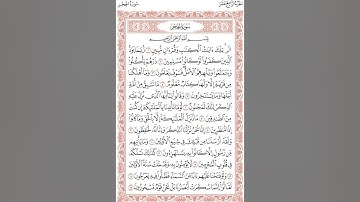 الجزء الرابع عشر سورة الحجر
سورة الحجر
بِسْمِ ٱللَّهِ ٱلرَّحْمَٰنِ ٱلرَّحِيمِ
الٓر ۚ تِلْكَ ءَايَٰتُ ٱلْكِتَٰبِ وَقُرْءَانٍ مُّبِينٍ ١ رُّبَمَا يَوَدُّ
ٱلَّذِينَ كَفَرُوا۟ لَوْ كَانُوا۟ مُسْلِمِينَ ٢ ذَرْهُمْ يَأْكُلُوا۟
وَيَتَمَتَّعُوا۟ وَيُلْهِهِمُ ٱلْأَمَلُ فَسَوْفَ يَعْلَمُونَ ٣ وَمَآ أَهْلَكْنَا
مِن قَرْيَةٍ إِلَّا وَلَهَا كِتَابٌ مَّعْلُومٌ ٤ مَّا تَسْبِقُ مِنْ أُمَّةٍ
أَجَلَهَا وَمَا يَسْتَـْٔخِرُونَ ٥ وَقَالُوا۟ يَٰٓأَيُّهَا ٱلَّذِى نُزِّلَ عَلَيْهِ
ٱلذِّكْرُ إِنَّكَ لَمَجْنُونٌ ٦ لَّوْ مَا تَأْتِينَا بِٱلْمَلَٰٓئِكَةِ إِن كُنتَ
مِنَ ٱلصَّٰدِقِينَ ٧ مَا نُنَزِّلُ ٱلْمَلَٰٓئِكَةَ إِلَّا بِٱلْحَقِّ وَمَا كَانُوٓا۟
إِذًا مُّنظَرِينَ ٨ إِنَّا نَحْنُ نَزَّلْنَا ٱلذِّكْرَ وَإِنَّا لَهُۥ لَحَٰفِظُونَ ٩
وَلَقَدْ أَرْسَلْنَا مِن قَبْلِكَ فِى شِيَعِ ٱلْأَوَّلِينَ ١٠ وَمَا يَأْتِيهِم
مِّن رَّسُولٍ إِلَّا كَانُوا۟ بِهِۦ يَسْتَهْزِءُونَ ١١ كَذَٰلِكَ نَسْلُكُهُۥ
فِى قُلُوبِ ٱلْمُجْرِمِينَ ١٢ لَا يُؤْمِنُونَ بِهِۦ وَقَدْ خَلَتْ سُنَّةُ ٱلْأَوَّلِينَ ١٣
وَلَوْ فَتَحْنَا عَلَيْهِم بَابًا مِّنَ ٱلسَّمَآءِ فَظَلُّوا۟ فِيهِ يَعْرُجُونَ ١٤
لَقَالُوٓا۟ إِنَّمَا سُكِّرَتْ أَبْصَٰرُنَا بَلْ نَحْنُ قَوْمٌ مَّسْحُورُونَ ١٥